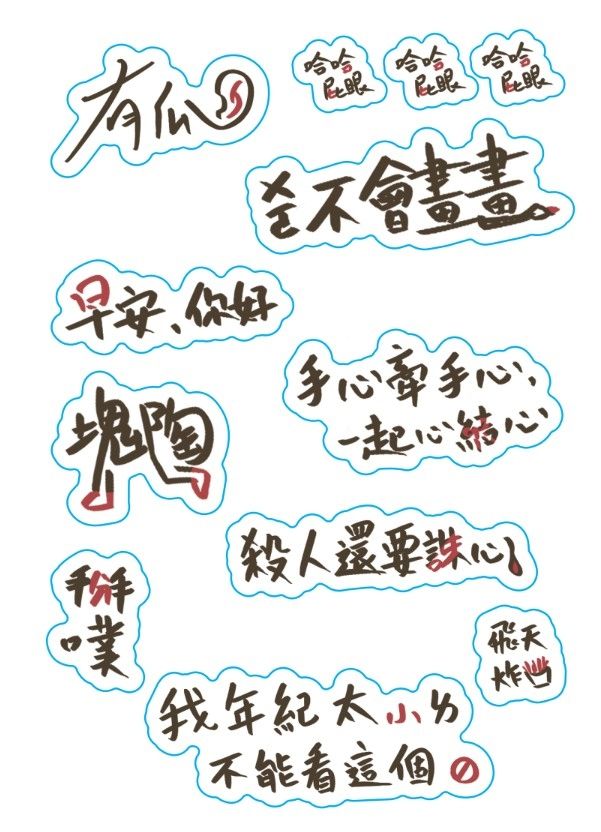 有瓜
哈哈
屁眼
哈哈
屁眼
哈哈
屁眼
不會畫畫
早安、你好
手心牽手心,
一起心結心
塊陶
殺人還要誅心
掰
噗
飛天
炸
我年紀太小ㄌ
不能看這個